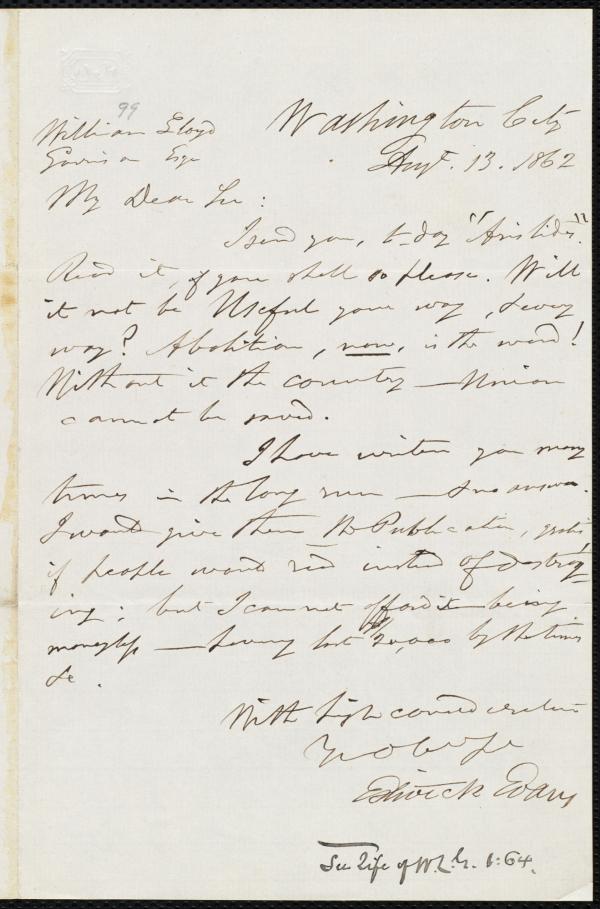 99
Washington City
Augt. 13. 1862
William Lloyd
Garrison Esqr
My Dear Sir :
I send you, to-day "Aristides".
Read it, if you shall so please. Will
it not be Useful your way, & every
way? Abolition, now, is the word!
Without it the country — Union
cannot be saved.
I have written you many
times in the long run — & no answer.
I would give them the Publication, gratis,
if people would read instead of destroy-
ing; but I can not afford it being
moneyless — having lost $20,000 by the times
&c.
With high consideration
Yr Obt Se
Estwick Evans
See Life of W.L.G. 1:64.